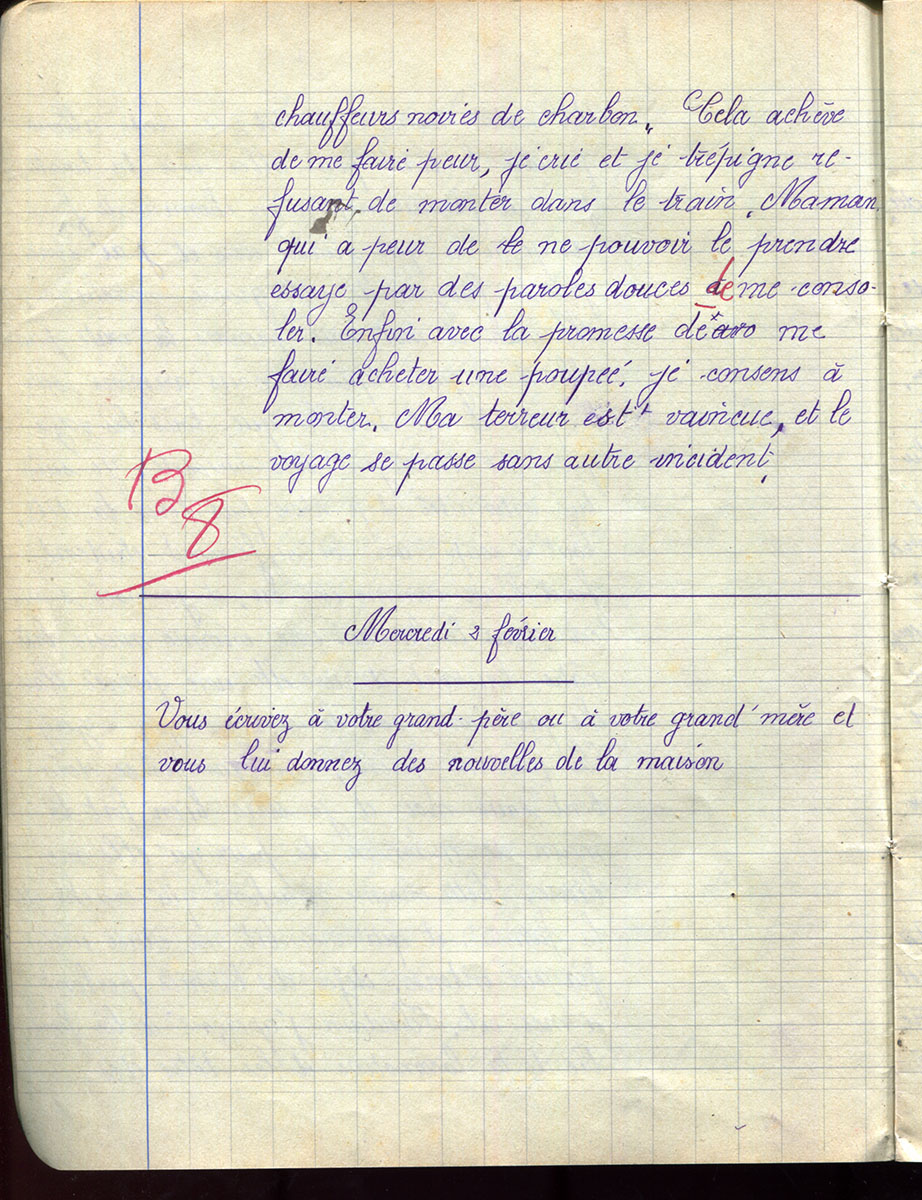 chauffeurs noirés de charbon. Cela achève
de me faire peur, je crie et je trépigne re-
fusant de monter dans le train. Maman
qui a peur de te ne pouvoir le prendre
essaye par des paroles douces de me conso-
ler. Enfin avec la promesse de me
faire acheter une poupée, je consens à
monter. Ma terreur est vaincue, et le
voyage se passe sans autre incident.
B
8
Mercredi 2 février
Vous écrivez à votre grand-père ou à votre grand'mère et
vous lui donnez des nouvelles de la maison